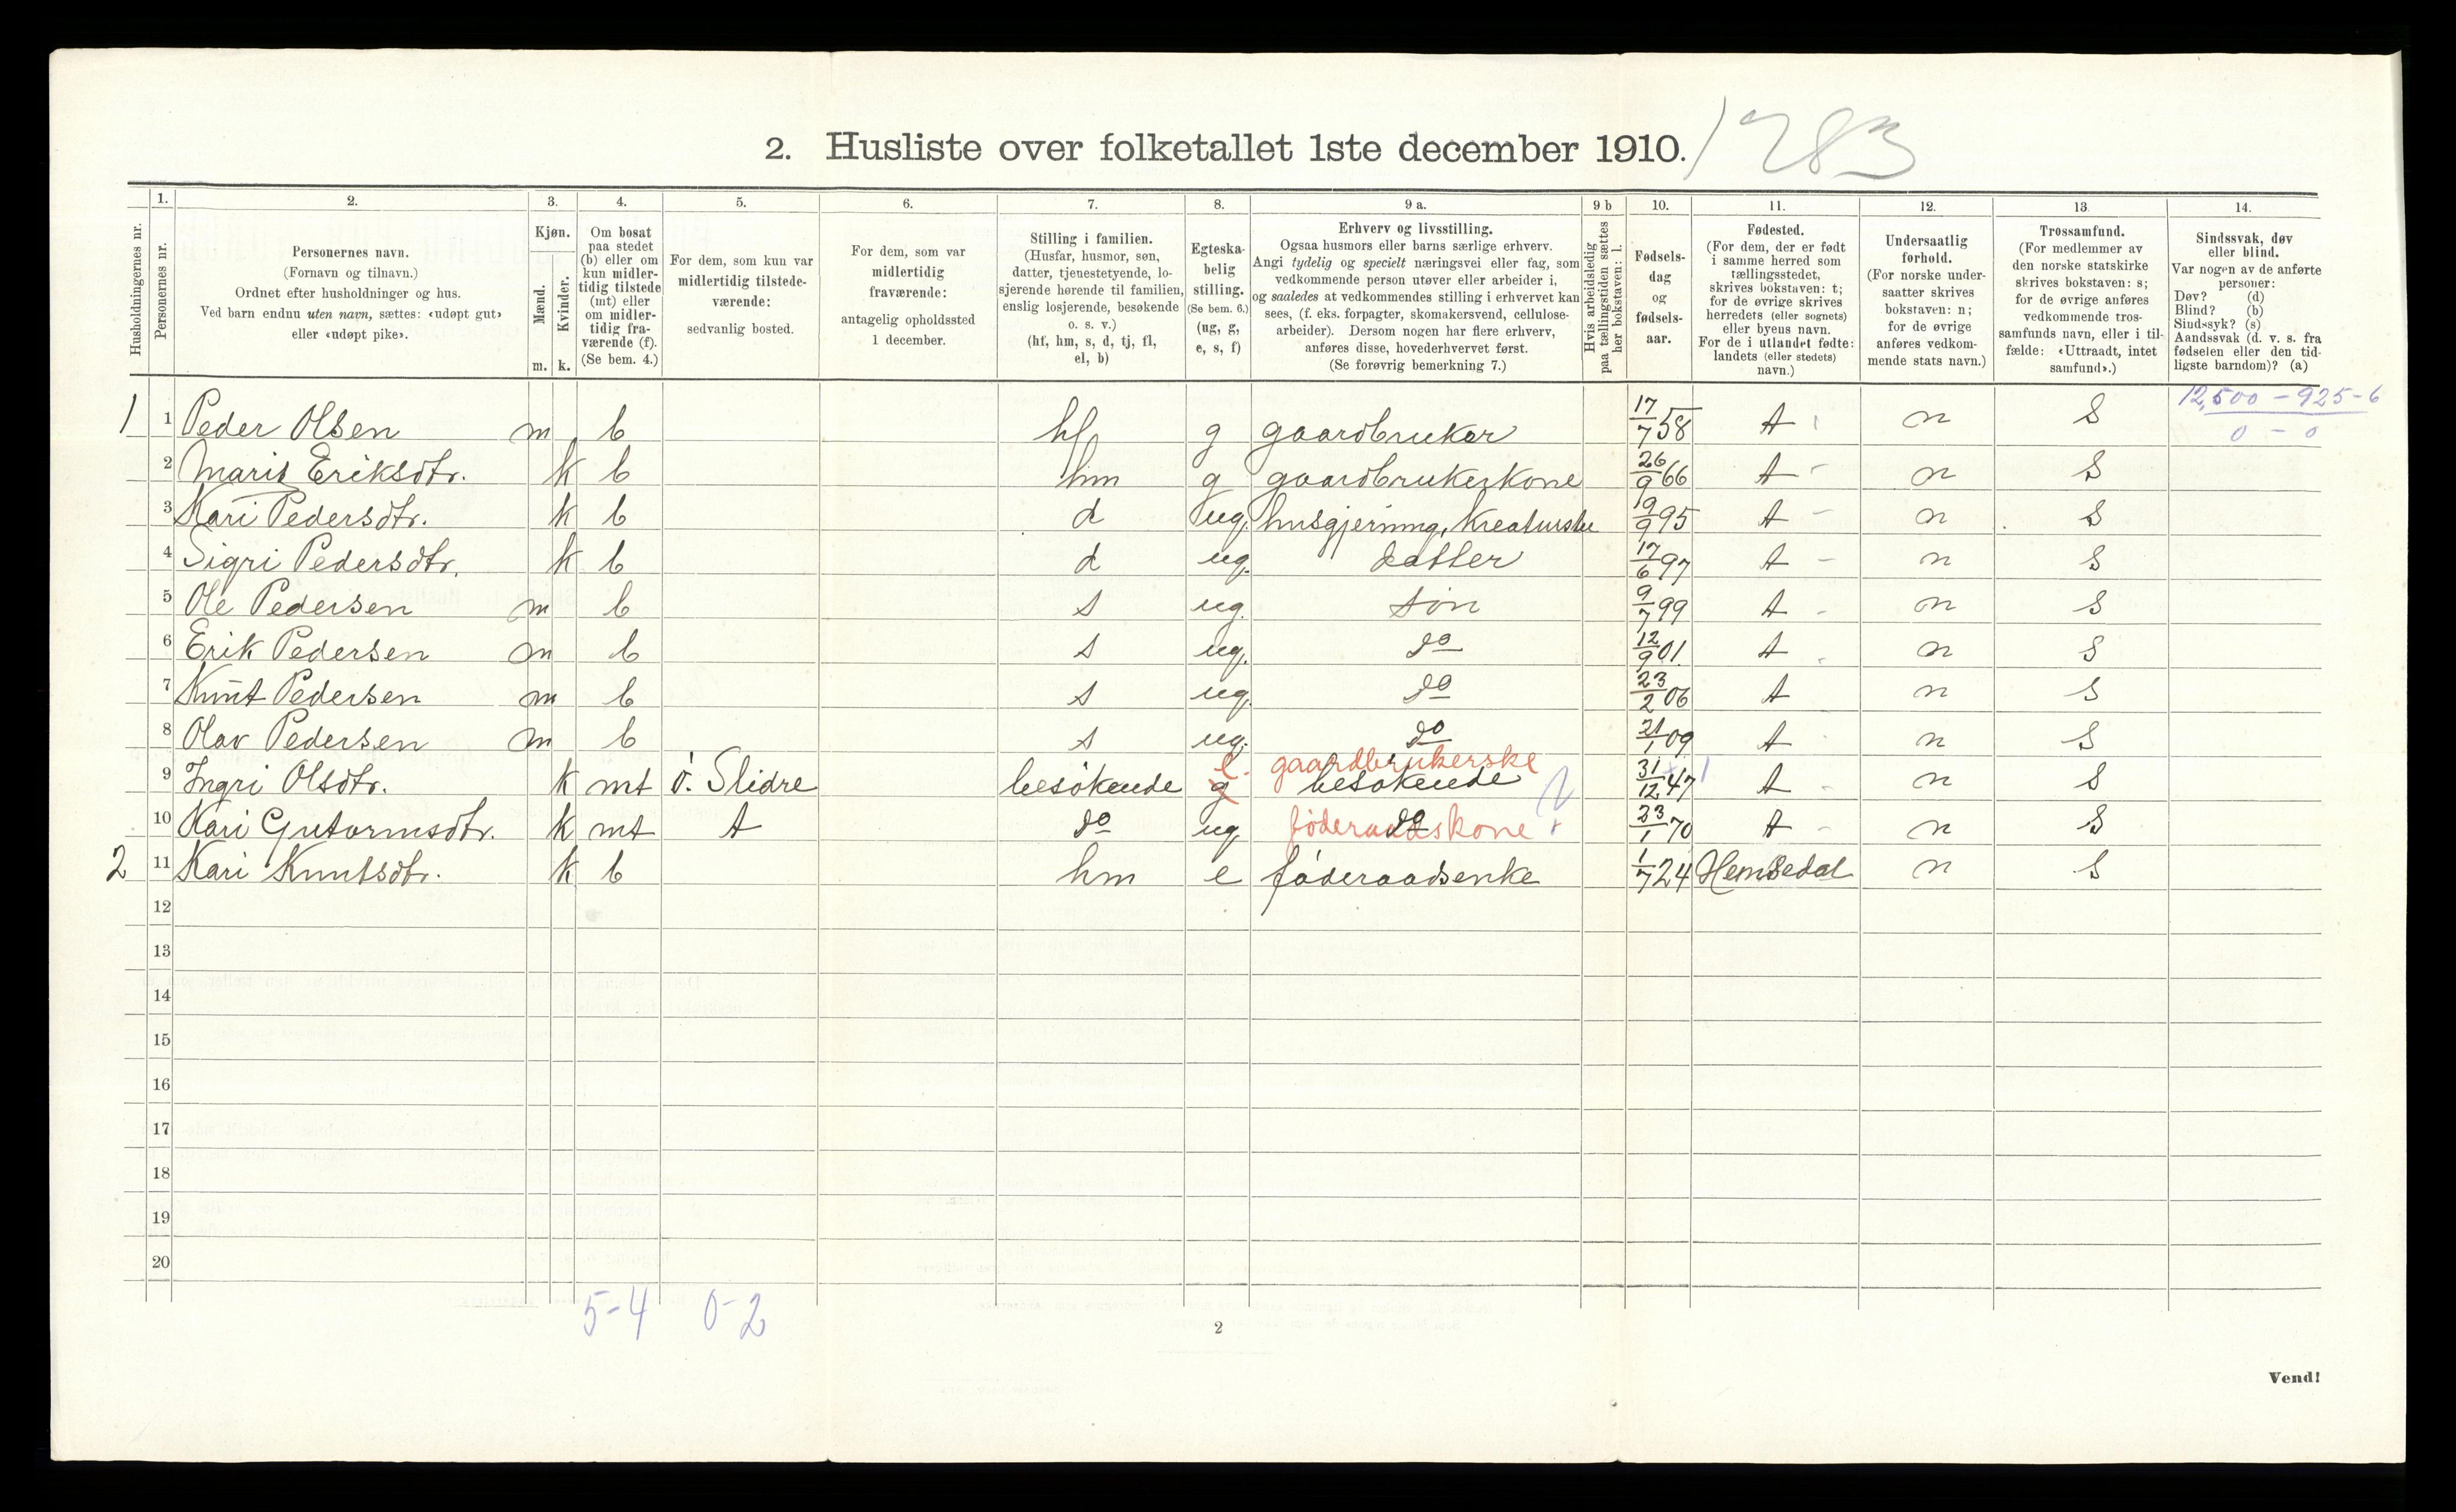 2. Husliste over folketallet 1ste december 1910. 1283
1. 2. 3. 4. 5. 6. 7. 8. 9 a. 9 b 10. 11. 12. 13. 14.
Husholdningernes nr.
Personernes nr.
Personernes navn.
(Fornavn og tilnavn.)
Ordnet efter husholdninger og hus.
Ved barn endnu uten navn, sættes: «udøpt gut»
eller «udøpt pike».
Kjøn.
Mænd.
Kvinder.
m. k.
Om bosat
paa stedet
(b) eller om
kun midler-
tidig tilstede
(mt) eller
om midler-
tidig fra-
værende (f).
(Se bem. 4.)
For dem, som kun var
midlertidig tilstede-
værende:
sedvanlig bosted.
For dem, som var
midlertidig
fraværende:
antagelig opholdssted
1 december.
Stilling i familien.
(Husfar, husmor, søn,
datter, tjenestetyende, lo-
sjerende hørende til familien,
enslig losjerende, besøkende
o. s. v.)
(hf, hm, s, d, tj, fl,
el, b)
Egteska-
belig
stilling.
(Se bem. 6.)
(ug, g,
e, s, f)
Erhverv og livsstilling.
Ogsaa husmors eller barns særlige erhverv.
Angi tydelig og specielt næringsvei eller fag, som
vedkommende person utøver eller arbeider i,
og saaledes at vedkommendes stilling i erhvervet kan
sees, (f. eks. forpagter, skomakersvend, cellulose-
arbeider). Dersom nogen har flere erhverv,
anføres disse, hovederhvervet først.
(Se forøvrig bemerkning 7.)
Hvis arbeidsledig
paa tællingstiden sættes
her bokstaven: l.
Fødsels-
dag
og
fødsels-
aar.
Fødested.
(For dem, der er født
i samme herred som
tællingsstedet,
skrives bokstaven: t;
for de øvrige skrives
herredets (eller sognets)
eller byens navn.
For de i utlandet fødte:
landets (eller stedets)
navn.)
Undersaatlig
forhold.
(For norske under-
saatter skrives
bokstaven: n;
for de øvrige
anføres vedkom-
mende stats navn.)
Trossamfund.
(For medlemmer av
den norske statskirke
skrives bokstaven: s;
for de øvrige anføres
vedkommende tros-
samfunds navn, eller i til-
fælde: «Uttraadt, intet
samfund».)
Sindssvak, døv
eller blind.
Var nogen av de anførte
personer:
Døv? (d)
Blind? (b)
Sindssyk? (s)
Aandssvak (d. v. s. fra
fødselen eller den tid-
ligste barndom)? (a)
12,500 - 925-6
0 - 0
1 1 Peder Olsen m b hf g gaardbruker 17/7 58 t n S
2 Marit Eriksdtr. k b hm g gaardbrukerkone 26/9 66 t n S
3 Kari Pedersdtr. k b d ug. husgjerning, kreaturste 19/9 95 t n S
4 Sigri Pedersdtr. k b d ug. datter 17/6 97 t n S
5 Ole Pedersen m b s ug. søn 9/7 99 t n S
6 Erik Pedersen m b s ug. do 12/9 01. t n S
7 Knut Pedersen m b s ug. do 23/2 06 t n S
8 Olav Pedersen m b s ug. do 21/1 09 t n S
9 Ingri Olsdtr. k mt ö. Slidre besökende g e. gaardbrukerske besökende 31/12 47 t n S
10 Kari Gutormsdtr. k mt t do ug. do föderaadskone 23/1 70 t n S
2 11 Kari Knutsdtr. k b hm e föderaadsenke 1/7 24 Hemsedal n S
12
13
14
15
16
17
18
19
20
5-4 0-2
2
Vend!